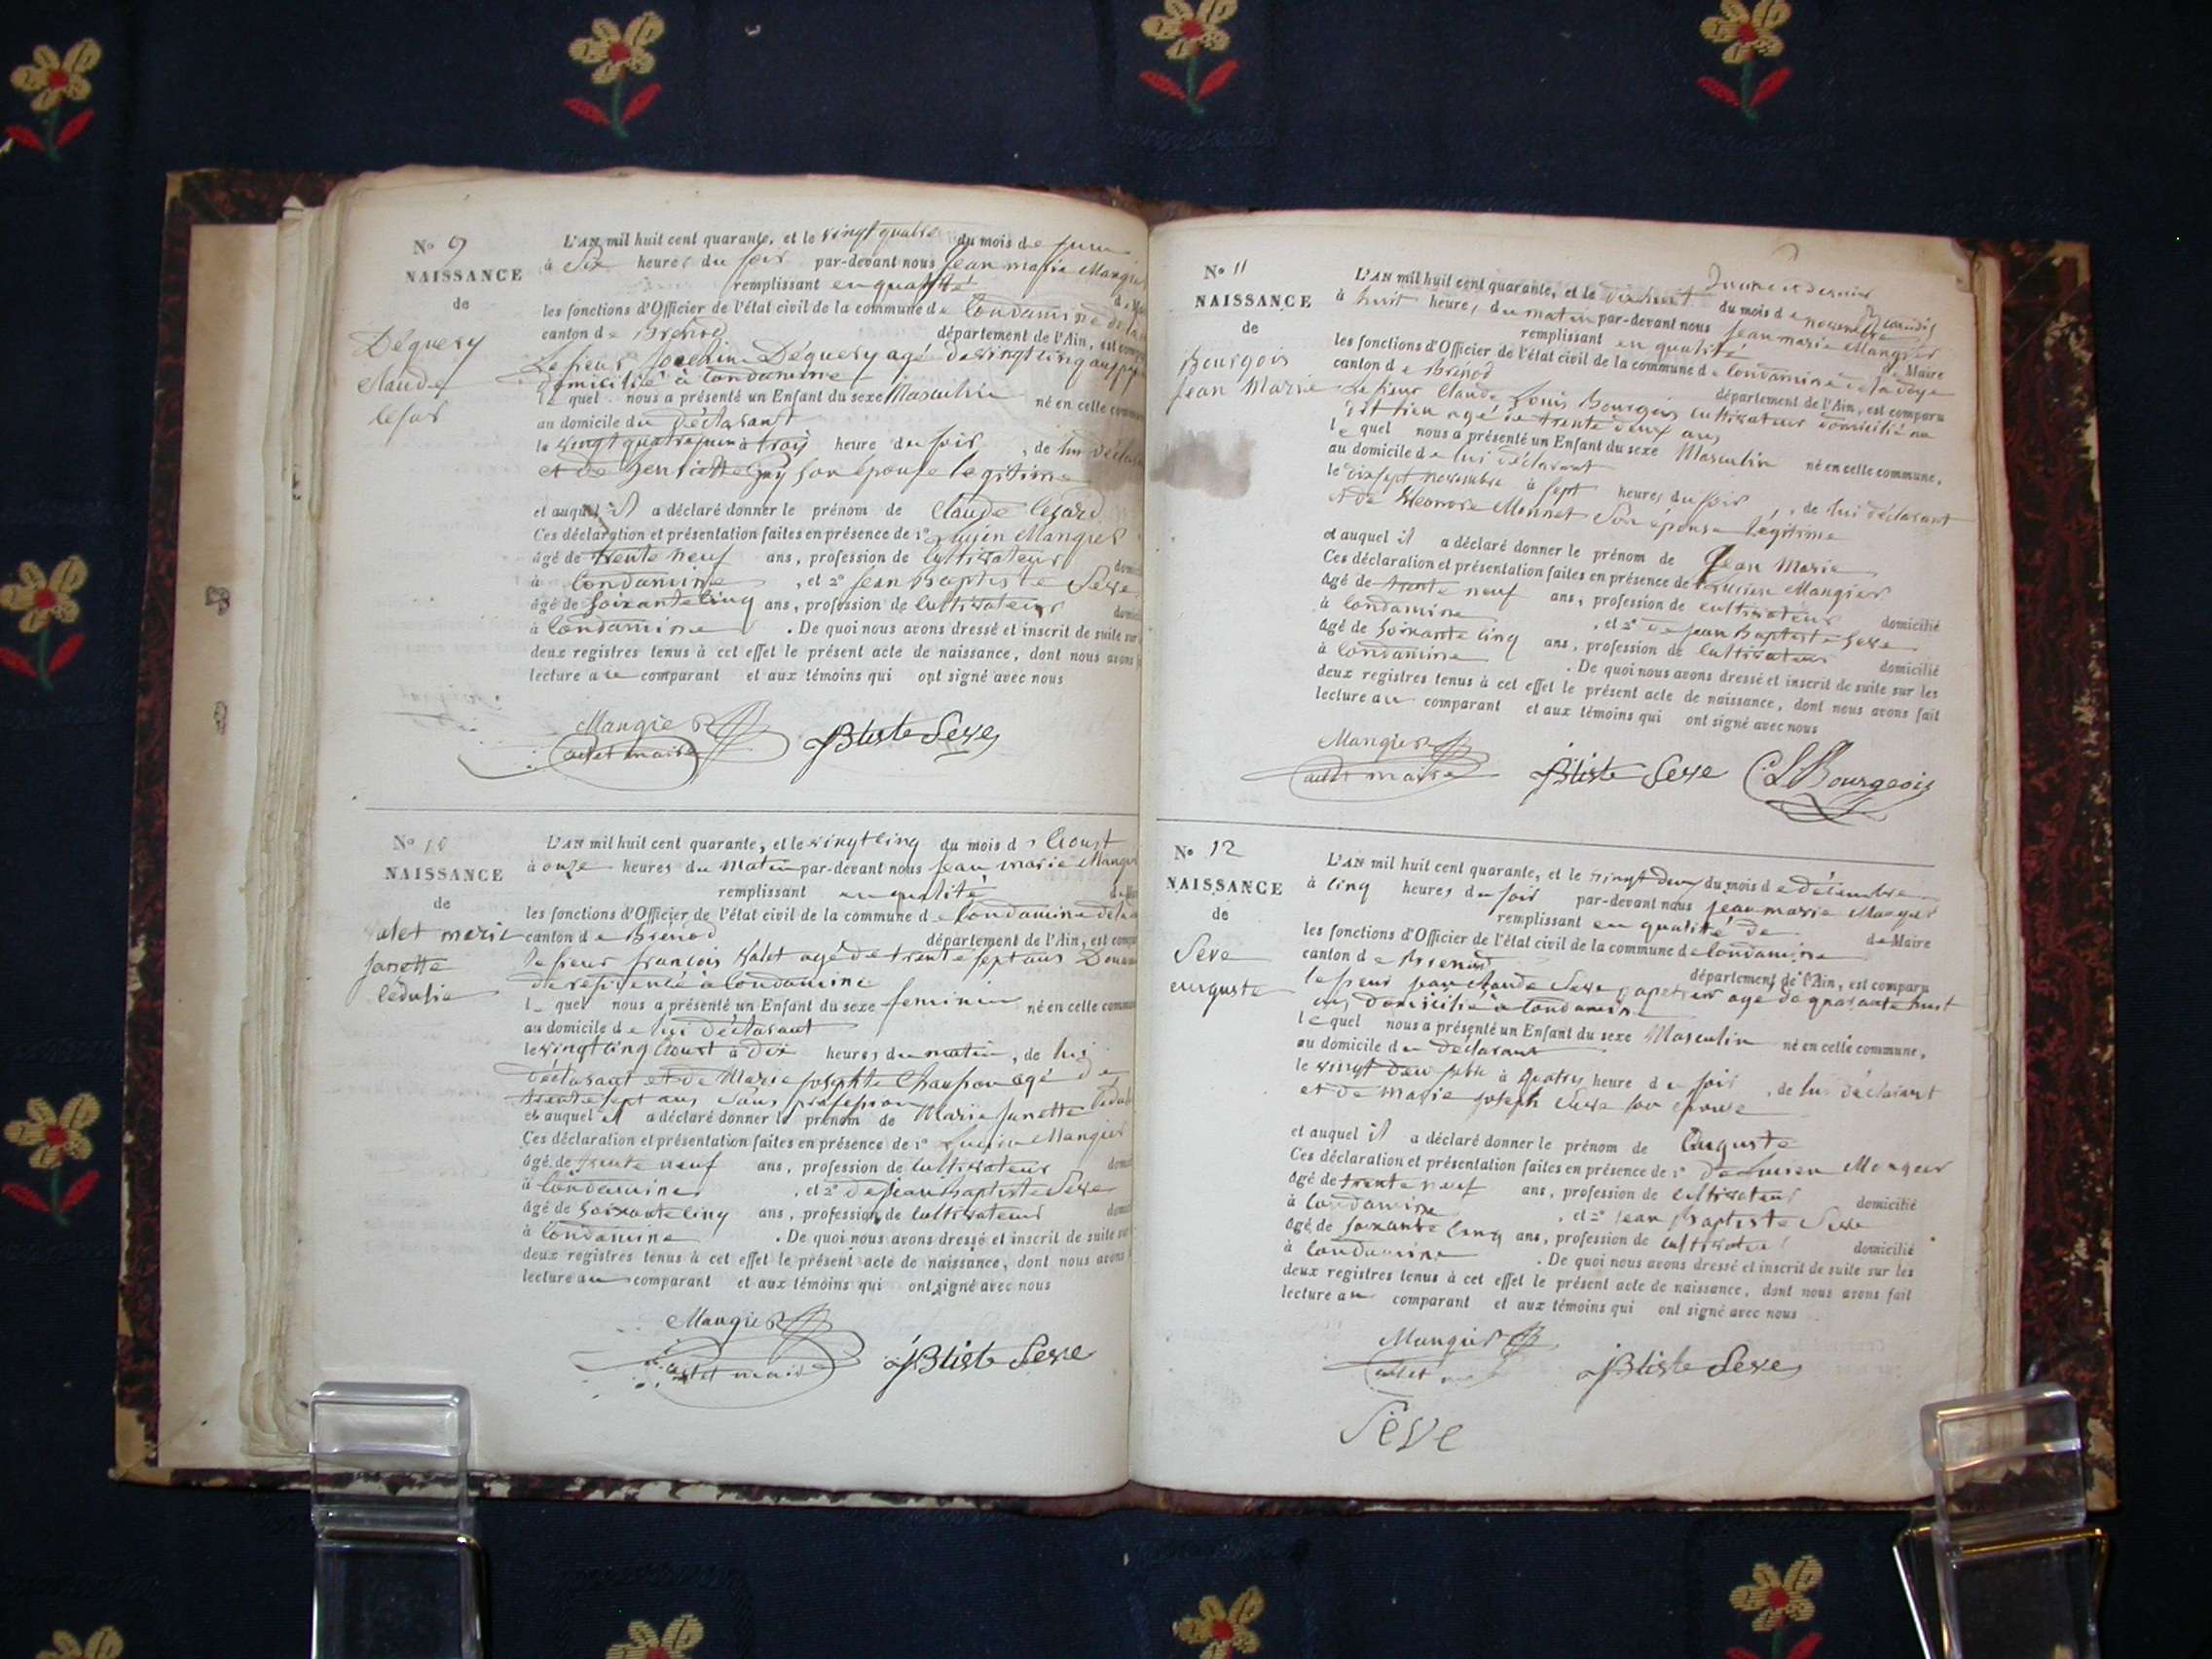 No 9
NAISSANCE
de
Déguery
Claude
Cesar
L'AN mil huit cent quarante, et le vingt quatre du mois de juin
à Six heures du soir par-devant nous Jean marie Mangier
remplissant en qualité
les fonctions d'Officier de l'état civil de la commune de Condamine de la
canton de Brenod département de l'Ain, est
Le sieur Joachim Déguery agé de vingt cinq ans
domicilié à Condamine
le quel nous a présenté un Enfant du sexe Masculin né en cette
au domicile du Déclarant
le vingt quatre juin à trois heure du soir , de lui
et de henriette Guy son épouse legitime
et auquel il a déclaré donner le prénom de Claude Cesard
Ces déclaration et présentation faites en présence de 1° Lucien Mangier
âgé de trente neuf ans, profession de Cultivateur
à Condamine , et 2° jean Baptiste Seve
âgé de Soixante Cinq ans, profession de Cultivateur
à Condamine . De quoi nous avons dressé et inscrit de suite sur
deux registres tenus à cet effet le présent acte de naissance, dont nous avons
lecture au comparant et aux témoins qui ont signé avec nous
Mangier
adet maire
JBtiste Seve
No 10
NAISSANCE
de
marie
Janette
L'AN mil huit cent quarante, et le vingt cinq du mois d'Aoust
à onze heures du Matin par-devant nous Jean marie
remplissant en qualité
les fonctions d'Officier de l'état civil de la commune de Condamine de la
canton de Brénod département de l'Ain, est
le sieur françois agé de trente sept ans
de residence à Condamine
l quel nous a présenté un Enfant du sexe feminin né en cette
au domicile de lui déclarant
le vingt cinq Aoust à Dix heures du matin , de lui
déclarant et de Marie josephte agé de
trente sept ans Sans profession
et auquel il a déclaré donner le prénom de Marie Janette
Ces déclaration et présentation faites en présence de 1° Lucien Mangier
âgé de trente neuf ans, profession de Cultivateur
à Condamine , et 2° de jean Baptiste Seve
âgé de Soixante Cinq ans, profession de Cultivateur
à Condamine . De quoi nous avons dressé et inscrit de suite sur
deux registres tenus à cet effet le présent acte de naissance, dont nous avons
lecture au comparant et aux témoins qui ont signé avec nous
Mangier
adet maire
JBtiste Seve
No 11
NAISSANCE
de
Bourgois
Jean Marie
L'AN mil huit cent quarante, et le dix huit du mois de novembre
à huit heures du matin par-devant nous jean marie Mangier
remplissant en qualité de Maire
les fonctions d'Officier de l'état civil de la commune de Condamine de la doye
canton de Brenod département de l'Ain, est comparu
Le sieur Claude Louis Bourgois Cultivateur domicilié
agé de trente deux ans
le quel nous a présenté un Enfant du sexe Masculin né en cette commune,
au domicile de lui déclarant
le dix sept novembre à sept heures du soir , de lui déclarant
et de Eleonore Monnet Son épouse légitime
et auquel il a déclaré donner le prénom de Jean Marie
Ces déclaration et présentation faites en présence de 1° Lucien Mangier
âgé de trente neuf ans, profession de cultivateur domicilié
à Condamine , et 2° de jean Baptiste Seve
âgé de Soixante Cinq ans, profession de Cultivateur domicilié
à Condamine . De quoi nous avons dressé et inscrit de suite sur les
deux registres tenus à cet effet le présent acte de naissance, dont nous avons fait
lecture au comparant et aux témoins qui ont signé avec nous
Mangier
adet maire
JBtiste Seve
CLBourgeois
No 12
NAISSANCE
de
Seve
auguste
L'AN mil huit cent quarante, et le vingt deux du mois de décembre
à Cinq heures du soir par-devant nous jean marie Mangier
remplissant en qualité de de Maire
les fonctions d'Officier de l'état civil de la commune de Condamine
canton de Brenod département de l'Ain, est comparu
le sieur jean Claude Seve agé de quarante huit
ans domicilié à Condamine
le quel nous a présenté un Enfant du sexe Masculin né en cette commune,
au domicile du déclarant
le vingt deux à quatre heure du soir , de lui déclarant
et de marie joseph Seve son épouse
et auquel il a déclaré donner le prénom de Auguste
Ces déclaration et présentation faites en présence de 1° de Lucien Mangier
âgé de trente neuf ans, profession de cultivateur domicilié
à Condamine , et 2° jean Baptiste Seve
âgé de soixante Cinq ans, profession de cultivateur domicilié
à Condamine . De quoi nous avons dressé et inscrit de suite sur les
deux registres tenus à cet effet le présent acte de naissance, dont nous avons fait
lecture au comparant et aux témoins qui ont signé avec nous
Mangier
adet
JBtiste Seve
Seve